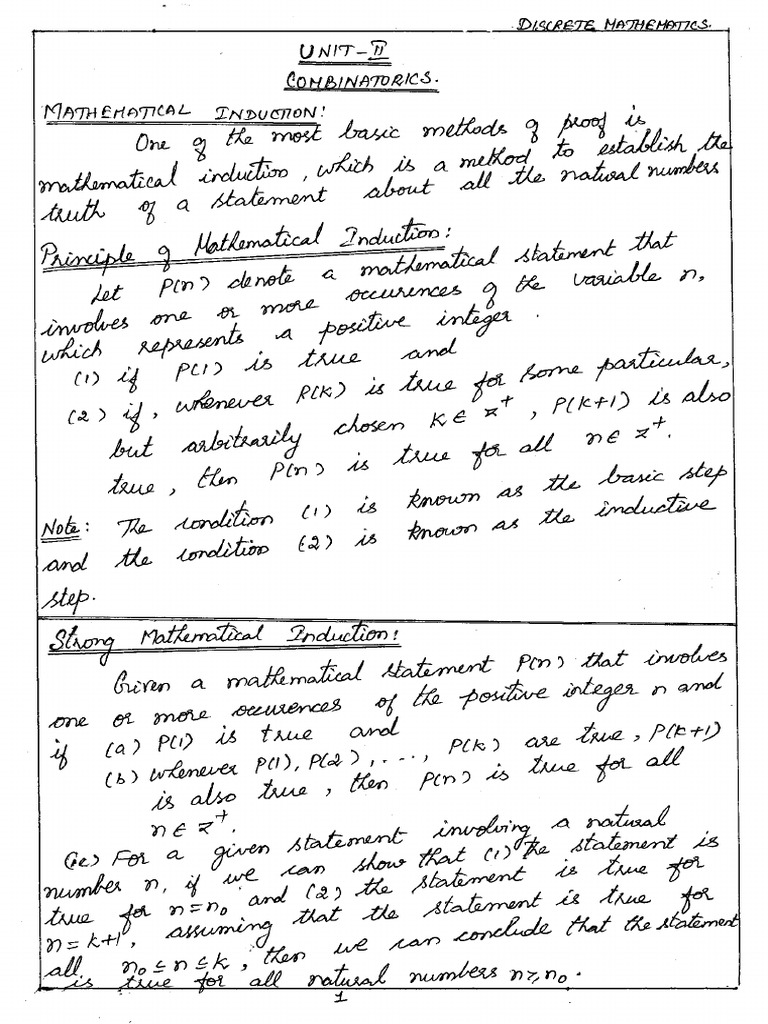 DISCRETE MATHEMATICS.
UNIT-II
COMBINATORICS.
MATHEMATICAL INDUCTION:
One of the most basic methods of proof is
mathematical induction, which is a method to establish the
truth of a statement about all the natural numbers
Principle of Mathematical Induction:
Let P(n) denote a mathematical statement that
involves one or more occurences of the variable n,
which represents a positive integer.
(1) if P(1) is true and
(2) if, whenever P(k) is true for some particular,
but arbitrarily chosen k ∈ z⁺, P(k+1) is also
true, then P(n) is true for all n ∈ z⁺.
Note: The condition (1) is known as the basic step
and the condition (2) is known as the inductive
step.
Strong Mathematical Induction:
Given a mathematical statement P(n) that involves
one or more occurences of the positive integer n and
if (a) P(1) is true and
(b) whenever P(1), P(2), ..., P(k) are true, P(k+1)
is also true, then P(n) is true for all
n ∈ z⁺.
(ie) For a given statement involving a natural
number n, if we can show that (1) the statement is
true for n = n₀ and (2) the statement is true for
n = k+1, assuming that the statement is true for
all n₀ ≤ n ≤ k, then we can conclude that the statement
is true for all natural numbers n ≥ n₀.
1